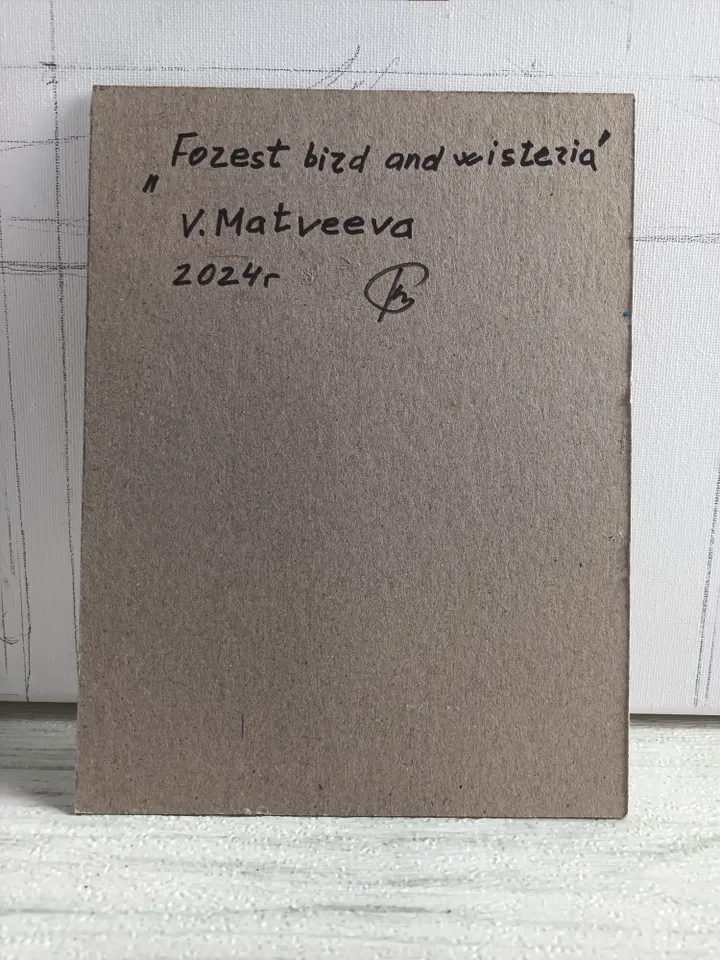 „Forest bird and wisteria"
V. Matveeva
2024г